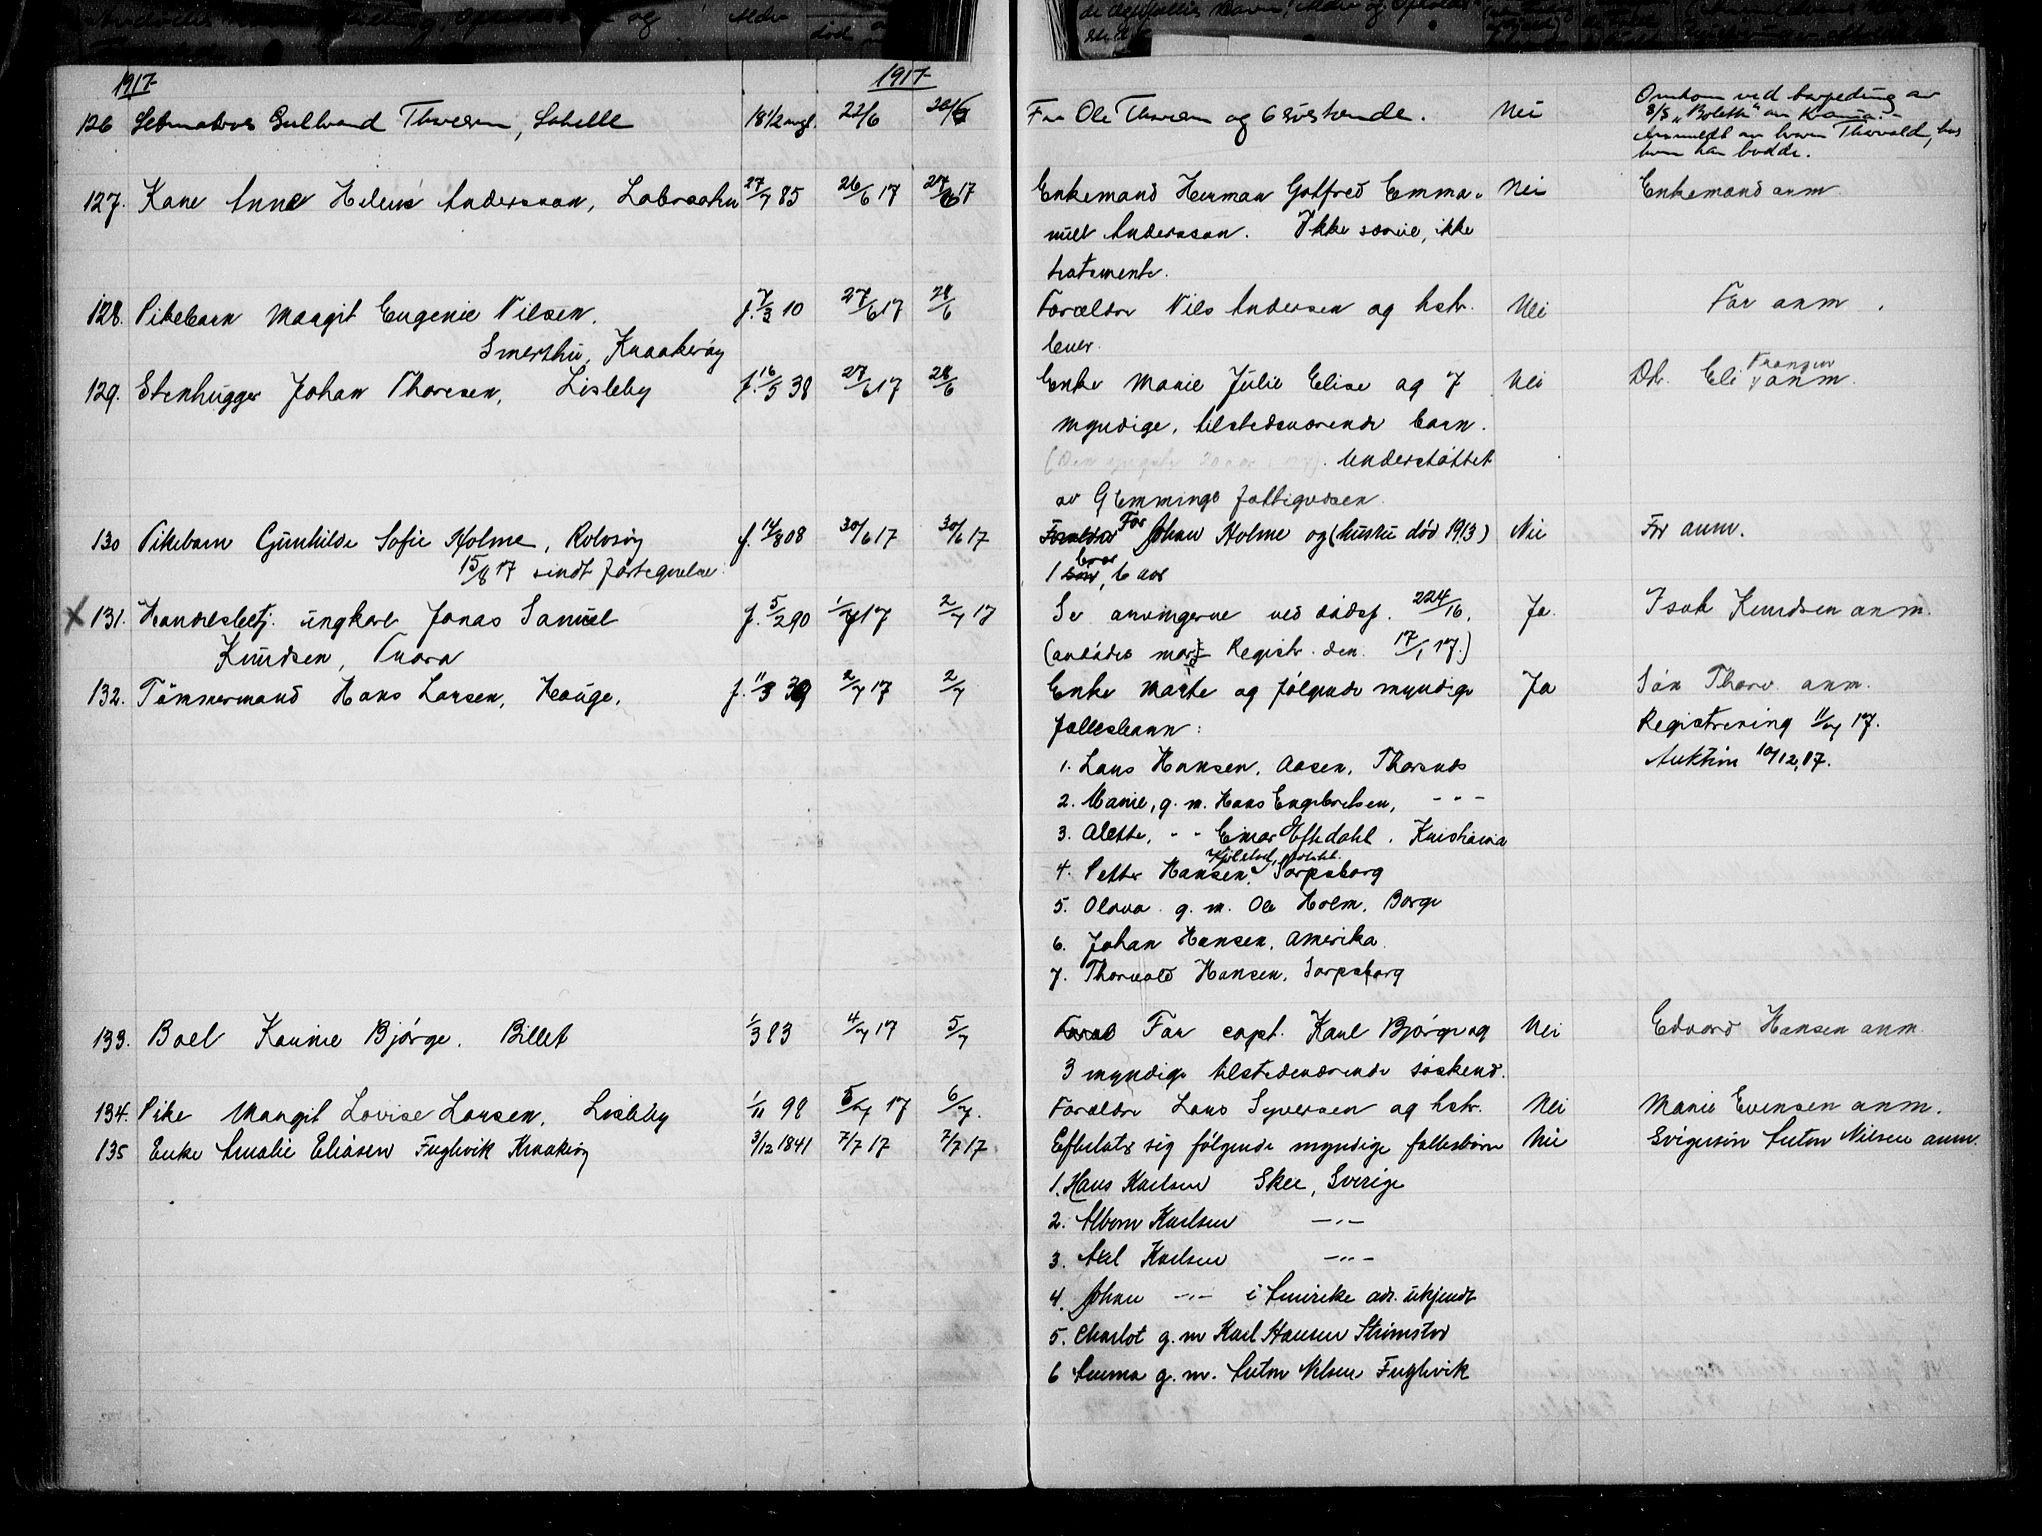 1917 1917
126 Gulbrand Thoresen, 18 1/2 ugf. 22/6 Far Ole Thoresen og 6 søskende. Nei Omkom ved torpedering av
S/S „Boletta" av Kr.ania.
Anmeldt av broren Thorvald, hos
hvem han bodde.
127. Kone Anne Helene Andersson, 27/7 85 26/6 17 27/6 17 Enkemand Herman Gotfred Emma- Nei Enkemand anm
nuel Andersson. Ikke særeie, ikke
testamente.
128. Pikebarn Margit Eugenie Nilsen. f. 7/3 10 27/6 17 28/6 Forældre Nils Andersen og hstr. Nei Far anm.
Smerthu, Kraakerøy lever.
129. Stenhugger Johan Thoresen, Lisleby f. 16/5 38 27/6 17 28/6 Enke Marie Julie Elise og 7 Nei Eli anm.
myndige, tilstedeværende barn.
Understøttet
av Glemminge fattigvæsen.
130 Pikebarn Gunhilde Sofie Holme, Rolvsøy f. 14/8 08 30/6 17 30/6 17 Forældre Far Johan Holme og (hustru død 1913) Nei Far anm.
15/8 17 sendt fortegnelse 1 søn bror, 6 aar
X 131. Handelsbetj. ungkarl Jonas Samuel f. 5/2 90 1/7 17 2/7 17 Se arvingerne ved dødsf. 224/16. Ja. Isak Knudsen anm.
Knudsen, Registr. den 17/1 17.)
132. Tømmermand Hans Larsen, Hauge. f. 11/3 39 2/7 17 2/7 Enke Marte og følgende myndige Ja Søn Thorv. anm.
fællesbarn: Registrering 11/7 17.
1. Lars Hansen, Aasen, Thorsnes Auktion 10/12 17.
2. Marie, g. m. Hans Engebretsen, - " -
3. Alette, - - Einar Eftedahl, Kristiania
4. Petter Hansen, Sarpsborg
5. Olava g. m. Ole Holm, Borge
6. Johan Hansen, Amerika
7. Thorvald Hansen, Sarpsborg
133. Boel Kaurine Bjørge. Billet 1/3 83 4/7 17 5/7 Far capt. Karl Bjørge og Nei Edvard Hansen anm.
3 myndige tilstedeværende søskend.
134. Pike Margit Lovise Larsen, Lisleby 1/11 98 5/7 17 6/7. Forældre Lars Syversen og hstr. Nei Marie Evensen anm.
135 Enke Amalie Eliasen Fuglevik Kraakerøy 3/12 1841 7/7 17 7/7 17 Efterlater sig følgende myndige fællesbørn Nei Svigersøn Anton Nilsen anm.
1. Hans Karlsen Skee, Sverige
2. Albern Karlsen - " -
3. Axel Karlsen - " -
4. Johan - " - i Amerika adr. ukjendt
5. Charlot g. m Karl Hansen Strømstad
6 Emma g. m. Anton Nilsen Fuglevik